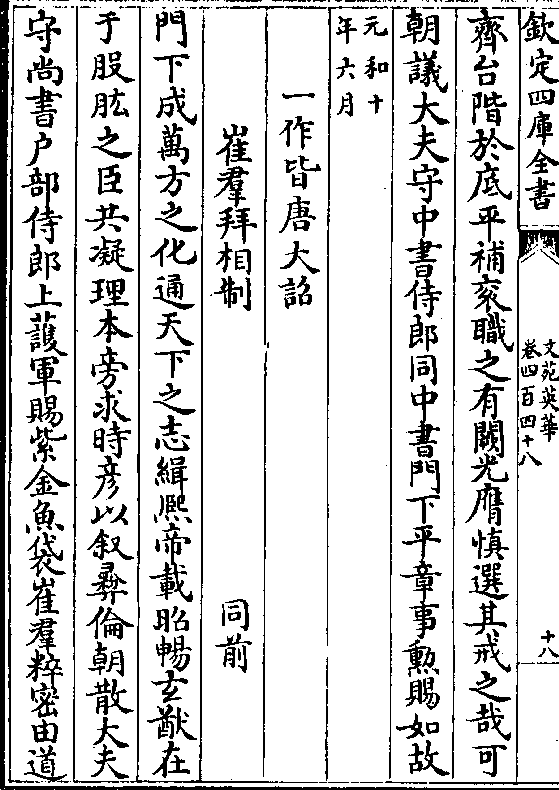 欽定四庫全書
文苑英華
卷四百四十八
十八
齊台階於底平補衮職之有闕光膺慎選其戒之哉可
朝議大夫守中書侍郎同中書門下平章事勲賜如故
元和十
年六月
一作皆唐大詔
崔羣拜相制
同前
門下成萬方之化通天下之志緝熈帝載昭暢玄猷在
于股肱之臣共凝理本旁求時彦以叙彞倫朝散大夫
守尚書户部侍郎上䕶軍賜紫金魚袋崔羣粹密由道